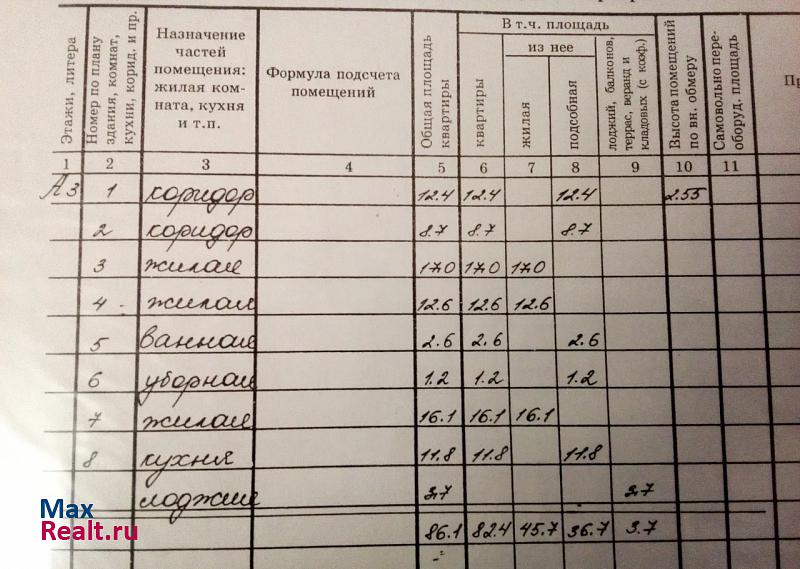 Этажи, литера
Номер по плану
здания, комнат,
кухни, корид. и пр.
Назначение
частей
помещения:
жилая ком-
ната, кухня
и т.п.
Формула подсчета
помещений
Общая площадь
квартиры
В т.ч. площадь
квартиры
из нее
жилая
подсобная
лоджий, балконов,
террас, веранд и
кладовых (с коэф.)
Высота помещений
по вн. обмеру
Самовольно пере-
оборуд. площадь
Пр
1 2 3 4 5 6 7 8 9 10 11
А3 1 коридор 12.4 12.4 12.4 2.55
2 коридор 8.7 8.7 8.7
3 жилая 17.0 17.0 17.0
4 жилая 12.6 12.6 12.6
5 ванная 2.6 2.6 2.6
6 уборная 1.2 1.2 1.2
7 жилая 16.1 16.1 16.1
8 кухня 11.8 11.8 11.8
лоджия 3.7 3.7
86.1 82.4 45.7 36.7 3.7
Max
Realt.ru